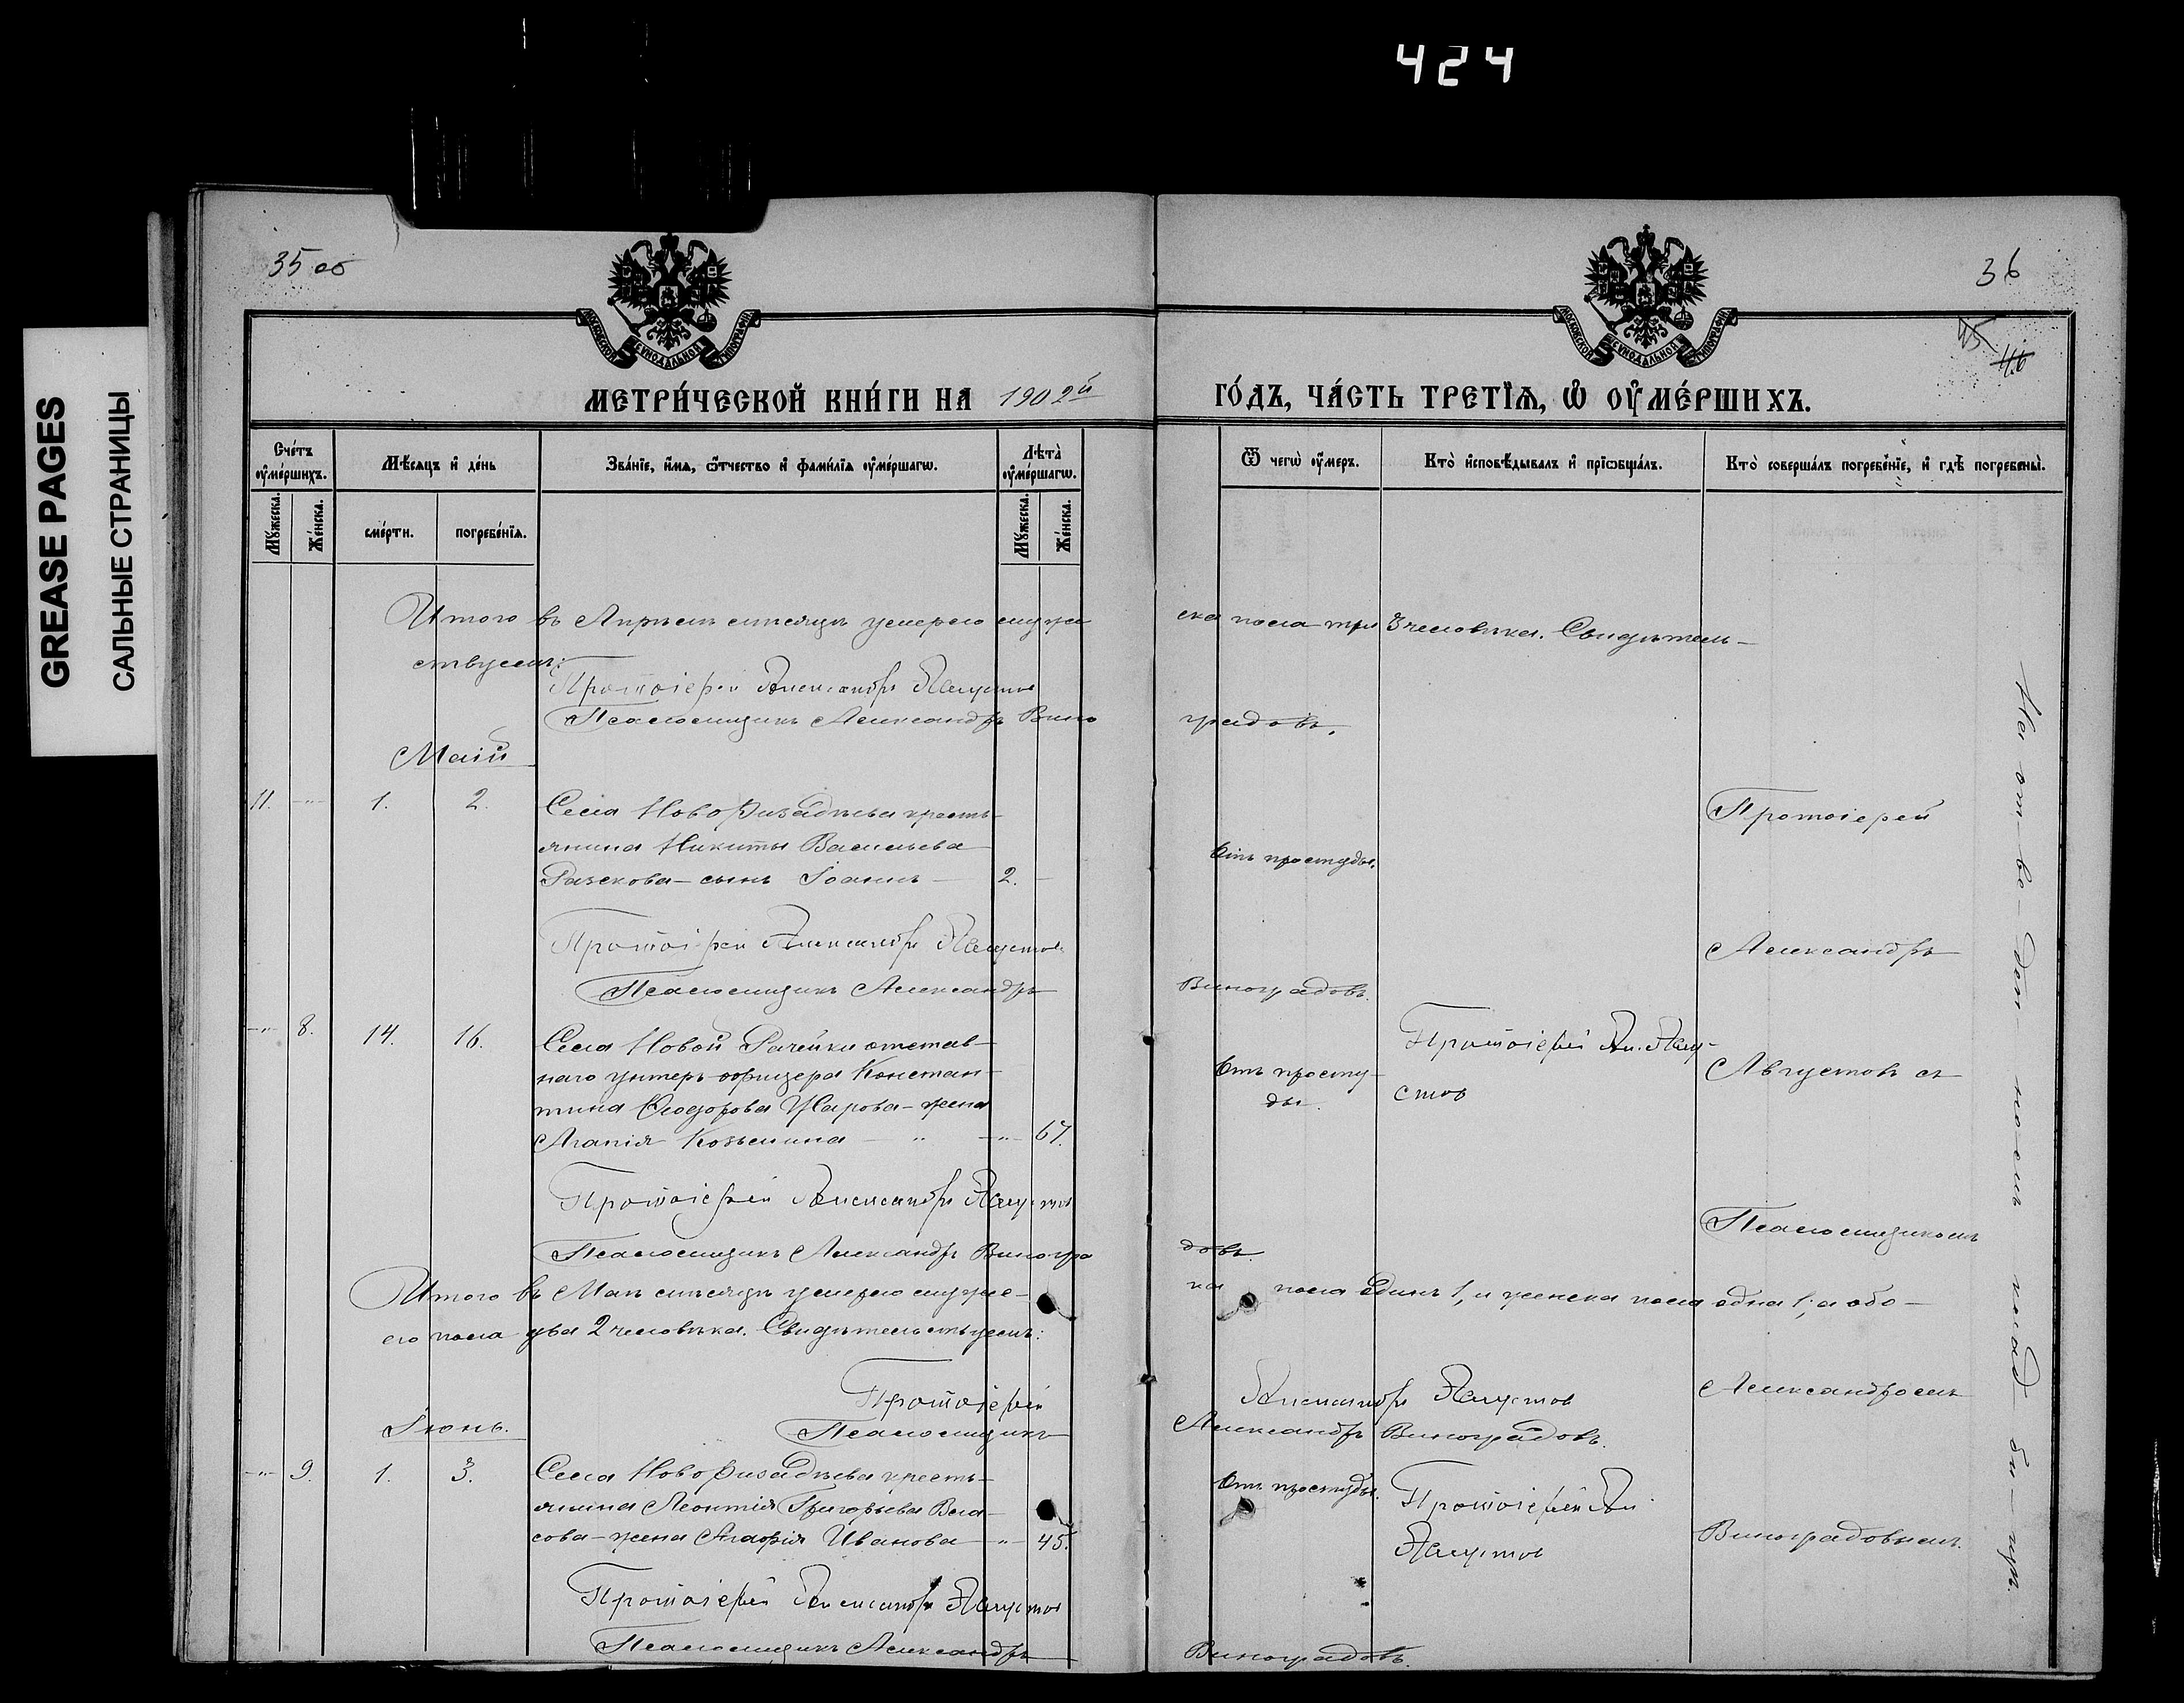 424
GREASE PAGES
САЛЬНЫЕ СТРАНИЦЫ
35 об
36
45
46
МОСКОВСКОЙ СѴНОДАЛЬНОЙ ТИПОГРАФІИ
МОСКОВСКОЙ СѴНОДАЛЬНОЙ ТИПОГРАФІИ
МЕТРИ́ЧЕСКОЙ КНИ́ГИ НА 1902й
ГО́ДЪ, ЧА́СТЬ ТРЕТЇѦ, Ѡ ОУ҆МЕ́РШИХЪ.
Сче́тъ оу҆ме́ршихъ.
Мꙋ́жеска.
Же́нска.
Мѣ́сѧцъ и҆ де́нь
сме́рти.
погребе́нїѧ.
Зва́нїе, и҆́мѧ, ѻ҆́тчество и҆ фами́лїѧ оу҆ме́ршагѡ.
Лѣ́та̀ оу҆ме́ршагѡ.
Мꙋ́жеска.
Же́нска.
Ѿ чегѡ̀ оу҆́меръ.
Кто̀ и҆сповѣ́дывалъ и҆ прїѡбща́лъ.
Кто̀ соверша́лъ погребе́нїе, и҆ гдѣ̀ погребены̀.
Итого въ Апрѣлѣ мѣсяцѣ умерло муже
ска пола три 3 человѣка. Свидѣтель-
ствуемъ:
Протоіерей Александръ Августов
Псаломщикъ Александръ Вино
градовъ.
Май
11. -"- 1. 2.
Села Новофизадѣева кресть-
янина Никиты Васильева
Разскова - сынъ Іоаннъ - 2. -
Отъ простуды.
Протоіерей
Протоіерей Александръ Августов
Александръ
Псаломщикъ Александръ
Виноградовъ.
-"- 8. 14. 16.
Села Новой Рачейки отстав-
наго унтеръ-офицера Констан-
тина Ѳеодорова Жарова - жена
Агапія Козьмина - " -"- 67.
Отъ просту-
ды.
Протоіерей Ал. Авгу-
стов
Августовъ съ
Протоіерей Александръ Августов
Псаломщикомъ
Псаломщикъ Александръ Виногра
довъ.
Итого въ Маѣ мѣсяцѣ умерло муже-
ка пола одинъ 1, и женска пола одна 1; а обо-
его пола два 2 человѣка. Свидѣтельствуемъ:
Протоіерей
Александръ Августов
Александромъ
Псаломщикъ
Александръ Виноградовъ.
Іюнь.
-"- 9. 1. 3.
Села Новофизадѣева кресть-
янина Леонтія Григорьева Вла-
сова - жена Агафія Иванова -"- 45.
Отъ простуды.
Протоіерей Ал.
Августов
Виноградовымъ.
Протоіерей Александръ Августов
Псаломщикъ Александръ
Виноградовъ.